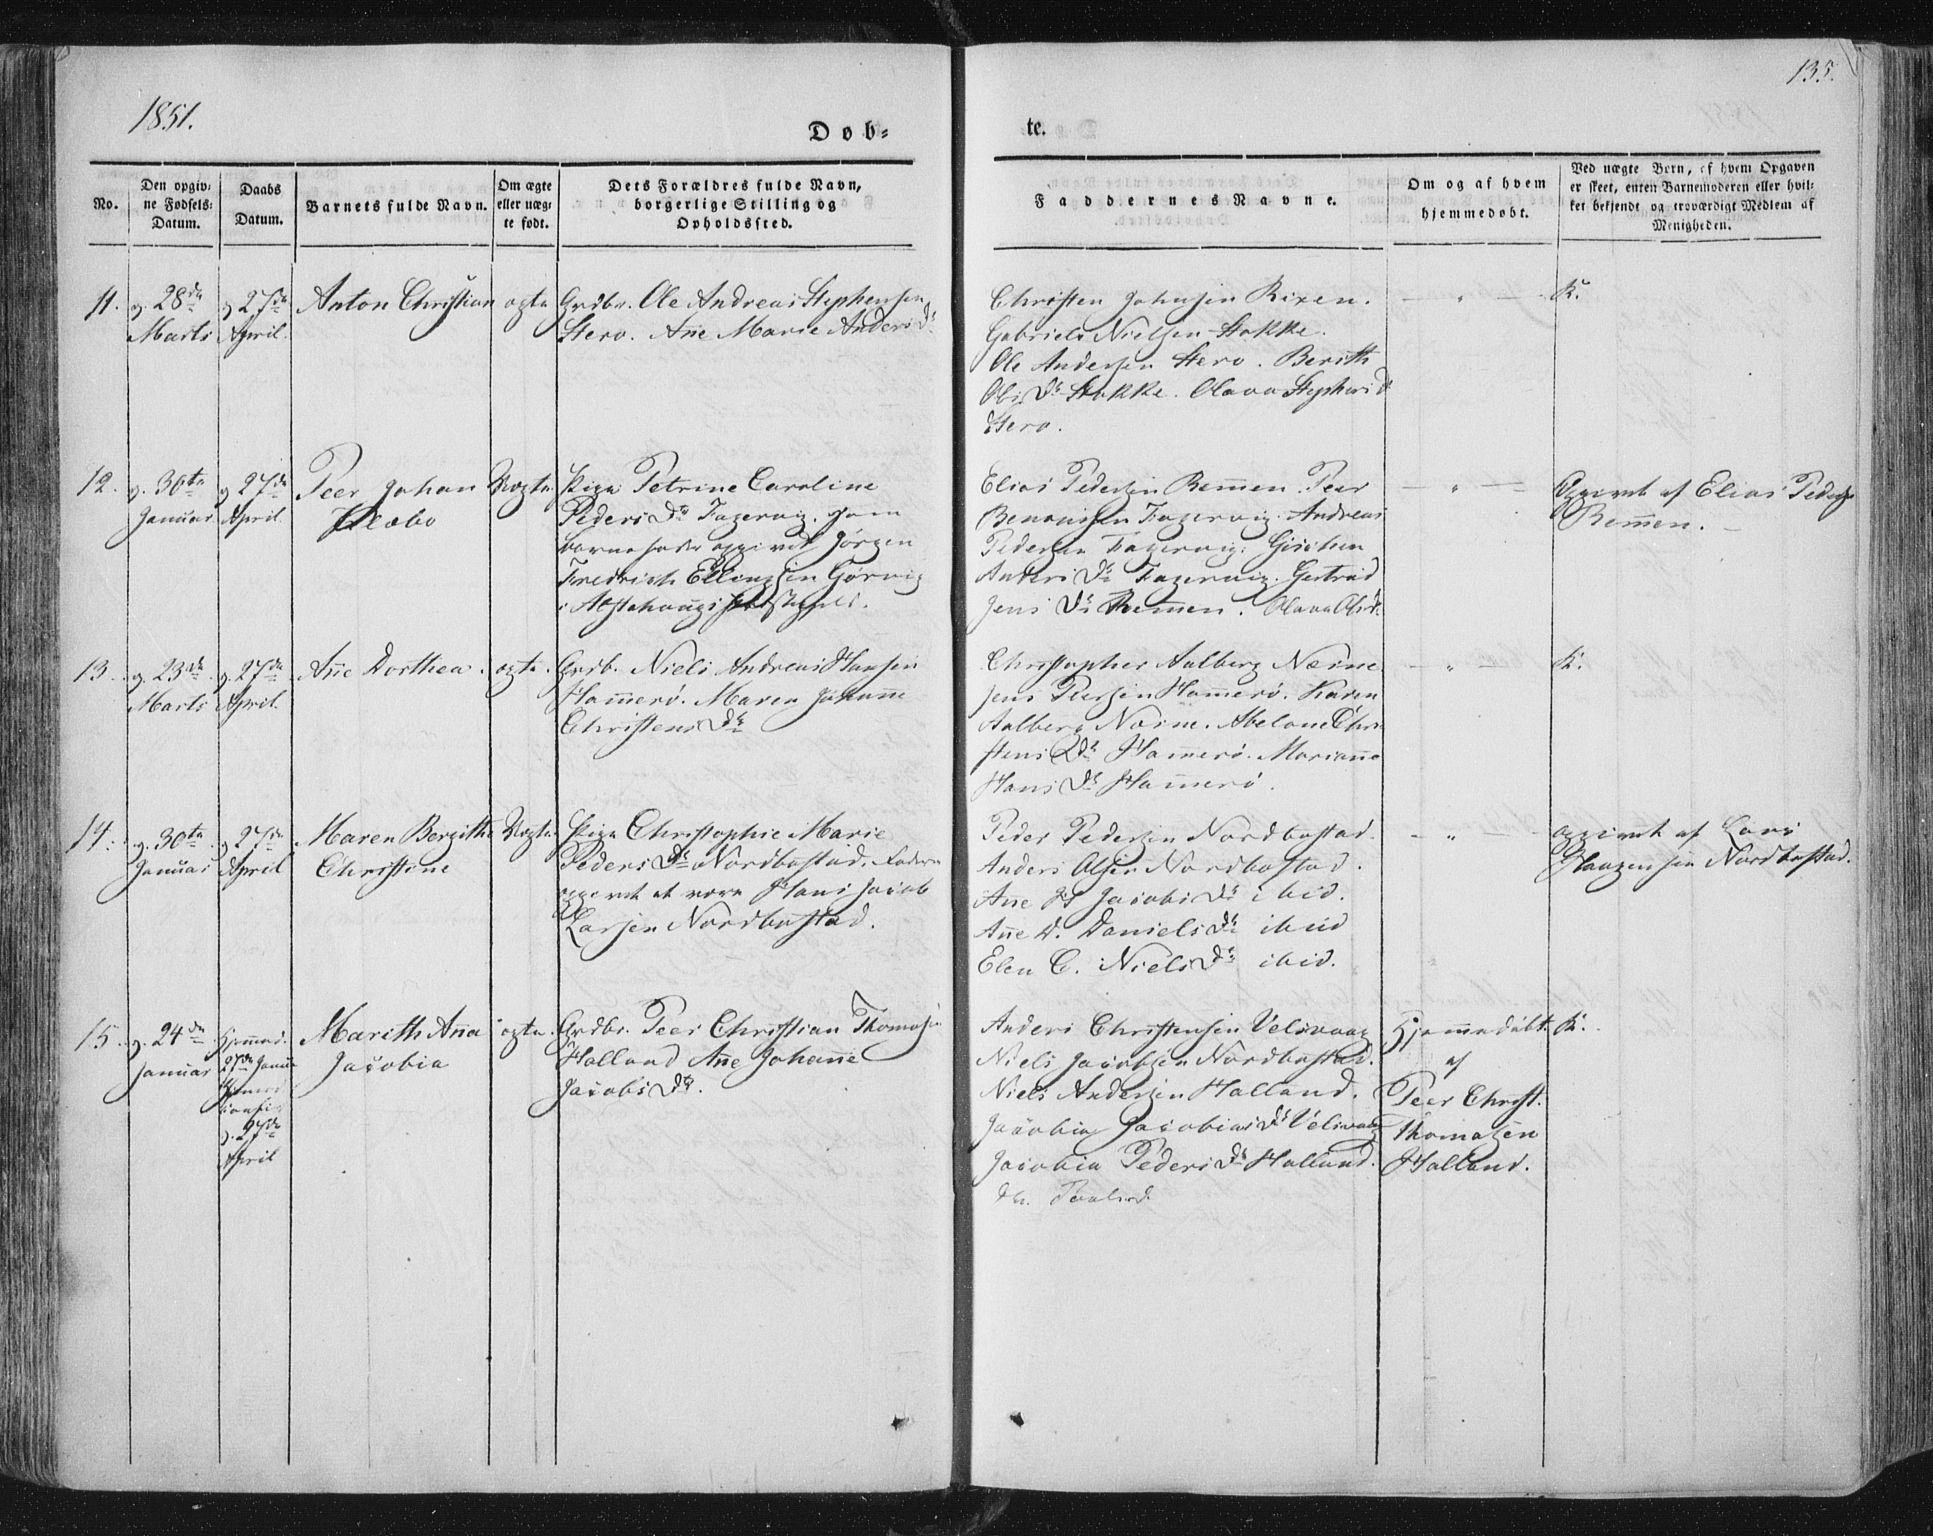 1851.
135.
Døb=
te.
No.
Den opgiv=
ne Fødsels=
Datum.
Daabs
Datum.
Barnets fulde Navn.
Om ægte
eller uæg=
te født.
Dets Forældres fulde Navn,
borgerlige Stilling og
Opholdssted.
Faddernes Navne.
Om og af hvem
hjemmedøbt.
Ved uægte Børn, af hvem Opgaven
er skeet, enten Barnemoderen eller hvil=
ket bekjendt og troværdigt Medlem af
Menigheden.
11.
28de
Marts
27de
April.
Anton Christian
ægte
Grdbr. Ole Andreas Stephensen
Sterø. Anne Marie Anders Dr
Christen Johnsen Rixen.
Gabriels Nielsen Stokke.
Ole Andersen Sterø. Berith
Ols Dr Stokke. Olava Stephens D
Sterø.
K.
12.
30te
Januar
27de
April
Peer Johan
Klæbo
Uægte
Pige Petrine Caroline
Peders Dr Fagervig. som
barnefader opgivet Jørgen
Fredrich Ellingsen Gørvig
i Alstahougs Præstegjeld.
Elias Pedersen Remmen. Peer
Benonissen Fagervig. Andreas
Pedersen Fagervig.
Anders Dr Fagervig. Gertrud
Jens Dr Remmen. Olava Ols D.
Opgivet af Elias Peders
Remmen.
13.
23de
Marts
27de
April
Anne Dorthea.
ægte.
Grdb. Niels Andreas Hansen
Hammerø. Maren Johanne
Christens Dr
Christopher Aalberg Næsne
Jens Peersen Hammerø. Karen
Aalberg Næsne. Abelone Chri
stens Dr Hammerø. Marianne
Hans Dr Hammerø.
K.
14.
30te
Januar
27de
April
Maren Bergithe
Christine
Uægte
Pige Christophie Marie
Peders Dr Nordbostad. Faderen
opgivet at være Hans Jacob
Larsen Nordbostad.
Peder Pedersen Nordbostad.
Anders Olsen Nordbostad.
Ane Jacobs Dr ibid.
Anne D. Daniels Dr ibid
Elen C. Niels Dr ibid.
opgivet af Lars
Haagensen Nordbostad.
15.
24de
Januar
Hjemmed.
27de Januar
27de
April
Marith Anna
Jacobia
ægte.
Grdbr. Peer Christian Thomasen
Halland Anne Johanne
Jacobs Dr.
Anders Christensen Velsvaag
Niels Jacobsen Nordbostad.
Niels Andersen Halland.
Jacobia Jacobias Dr Velsvaag
Jacobia Peders Dr Halland.
Hjemmedøbt.
af
Peer Christ.
Thomasen
Halland.
K.